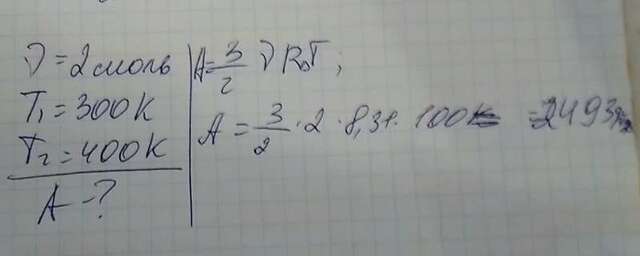 ν = 2 моль
T₁ = 300 K
T₂ = 400 K
A - ?
A = 3/2 ν RΔT;
A = 3/2 · 2 · 8,31 · 100 = 2493